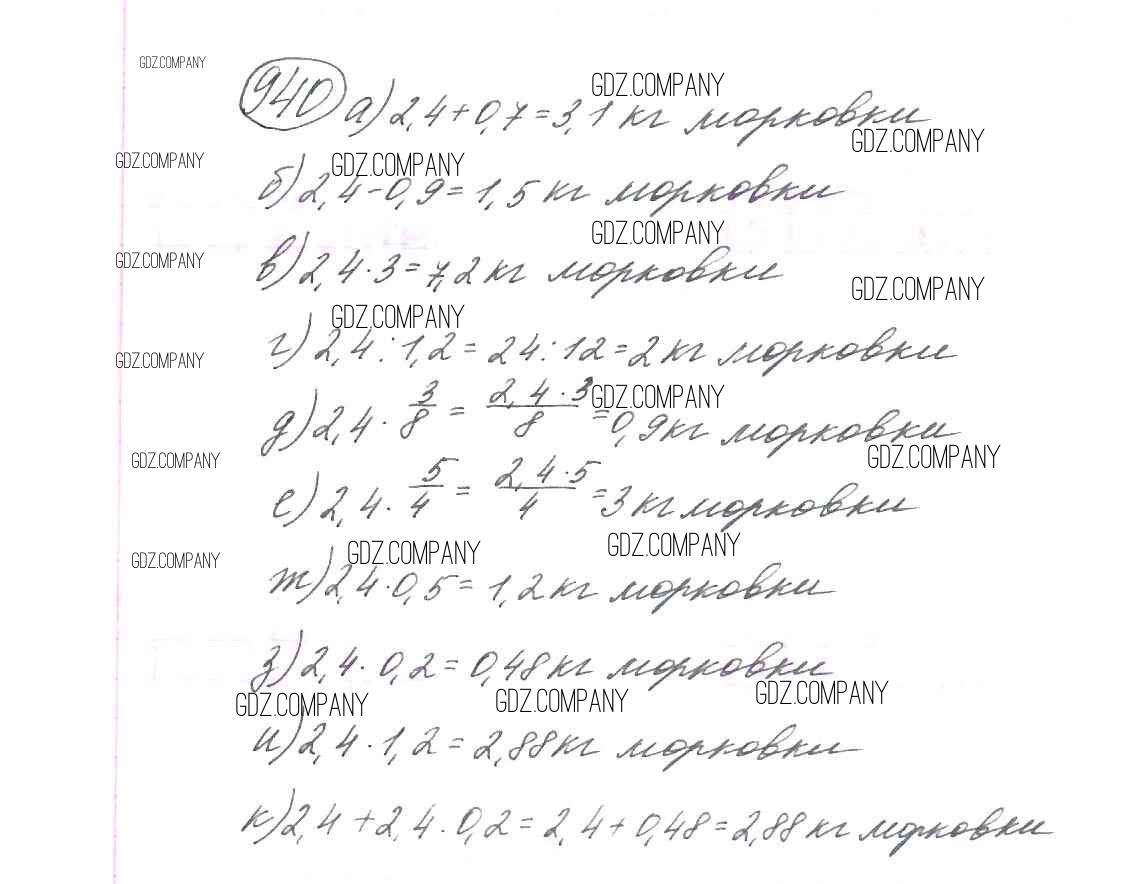 GDZ.COMPANY
940 а) 2,4 + 0,7 = 3,1 кг морковки
GDZ.COMPANY
GDZ.COMPANY
GDZ.COMPANY
GDZ.COMPANY
б) 2,4 - 0,9 = 1,5 кг морковки
GDZ.COMPANY
GDZ.COMPANY
в) 2,4 · 3 = 7,2 кг морковки
GDZ.COMPANY
GDZ.COMPANY
г) 2,4 : 1,2 = 24 : 12 = 2 кг морковки
GDZ.COMPANY
GDZ.COMPANY
д) 2,4 · 3/8 = 2,4 · 3/8 = 0,9 кг морковки
GDZ.COMPANY
GDZ.COMPANY
е) 2,4 · 5/4 = 2,4 · 5/4 = 3 кг морковки
GDZ.COMPANY
GDZ.COMPANY
GDZ.COMPANY
ж) 2,4 · 0,5 = 1,2 кг морковки
з) 2,4 · 0,2 = 0,48 кг морковки
GDZ.COMPANY
GDZ.COMPANY
GDZ.COMPANY
и) 2,4 · 1,2 = 2,88 кг морковки
к) 2,4 + 2,4 · 0,2 = 2,4 + 0,48 = 2,88 кг морковки